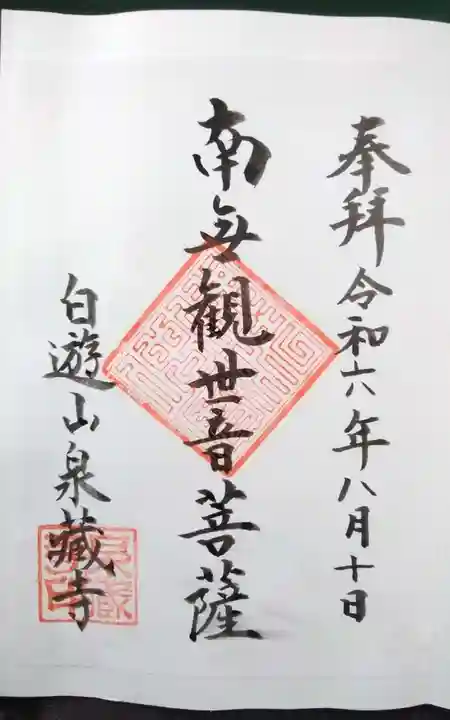 奉拝 令和六年八月十日
南無観世音菩薩
白遊山泉蔵寺